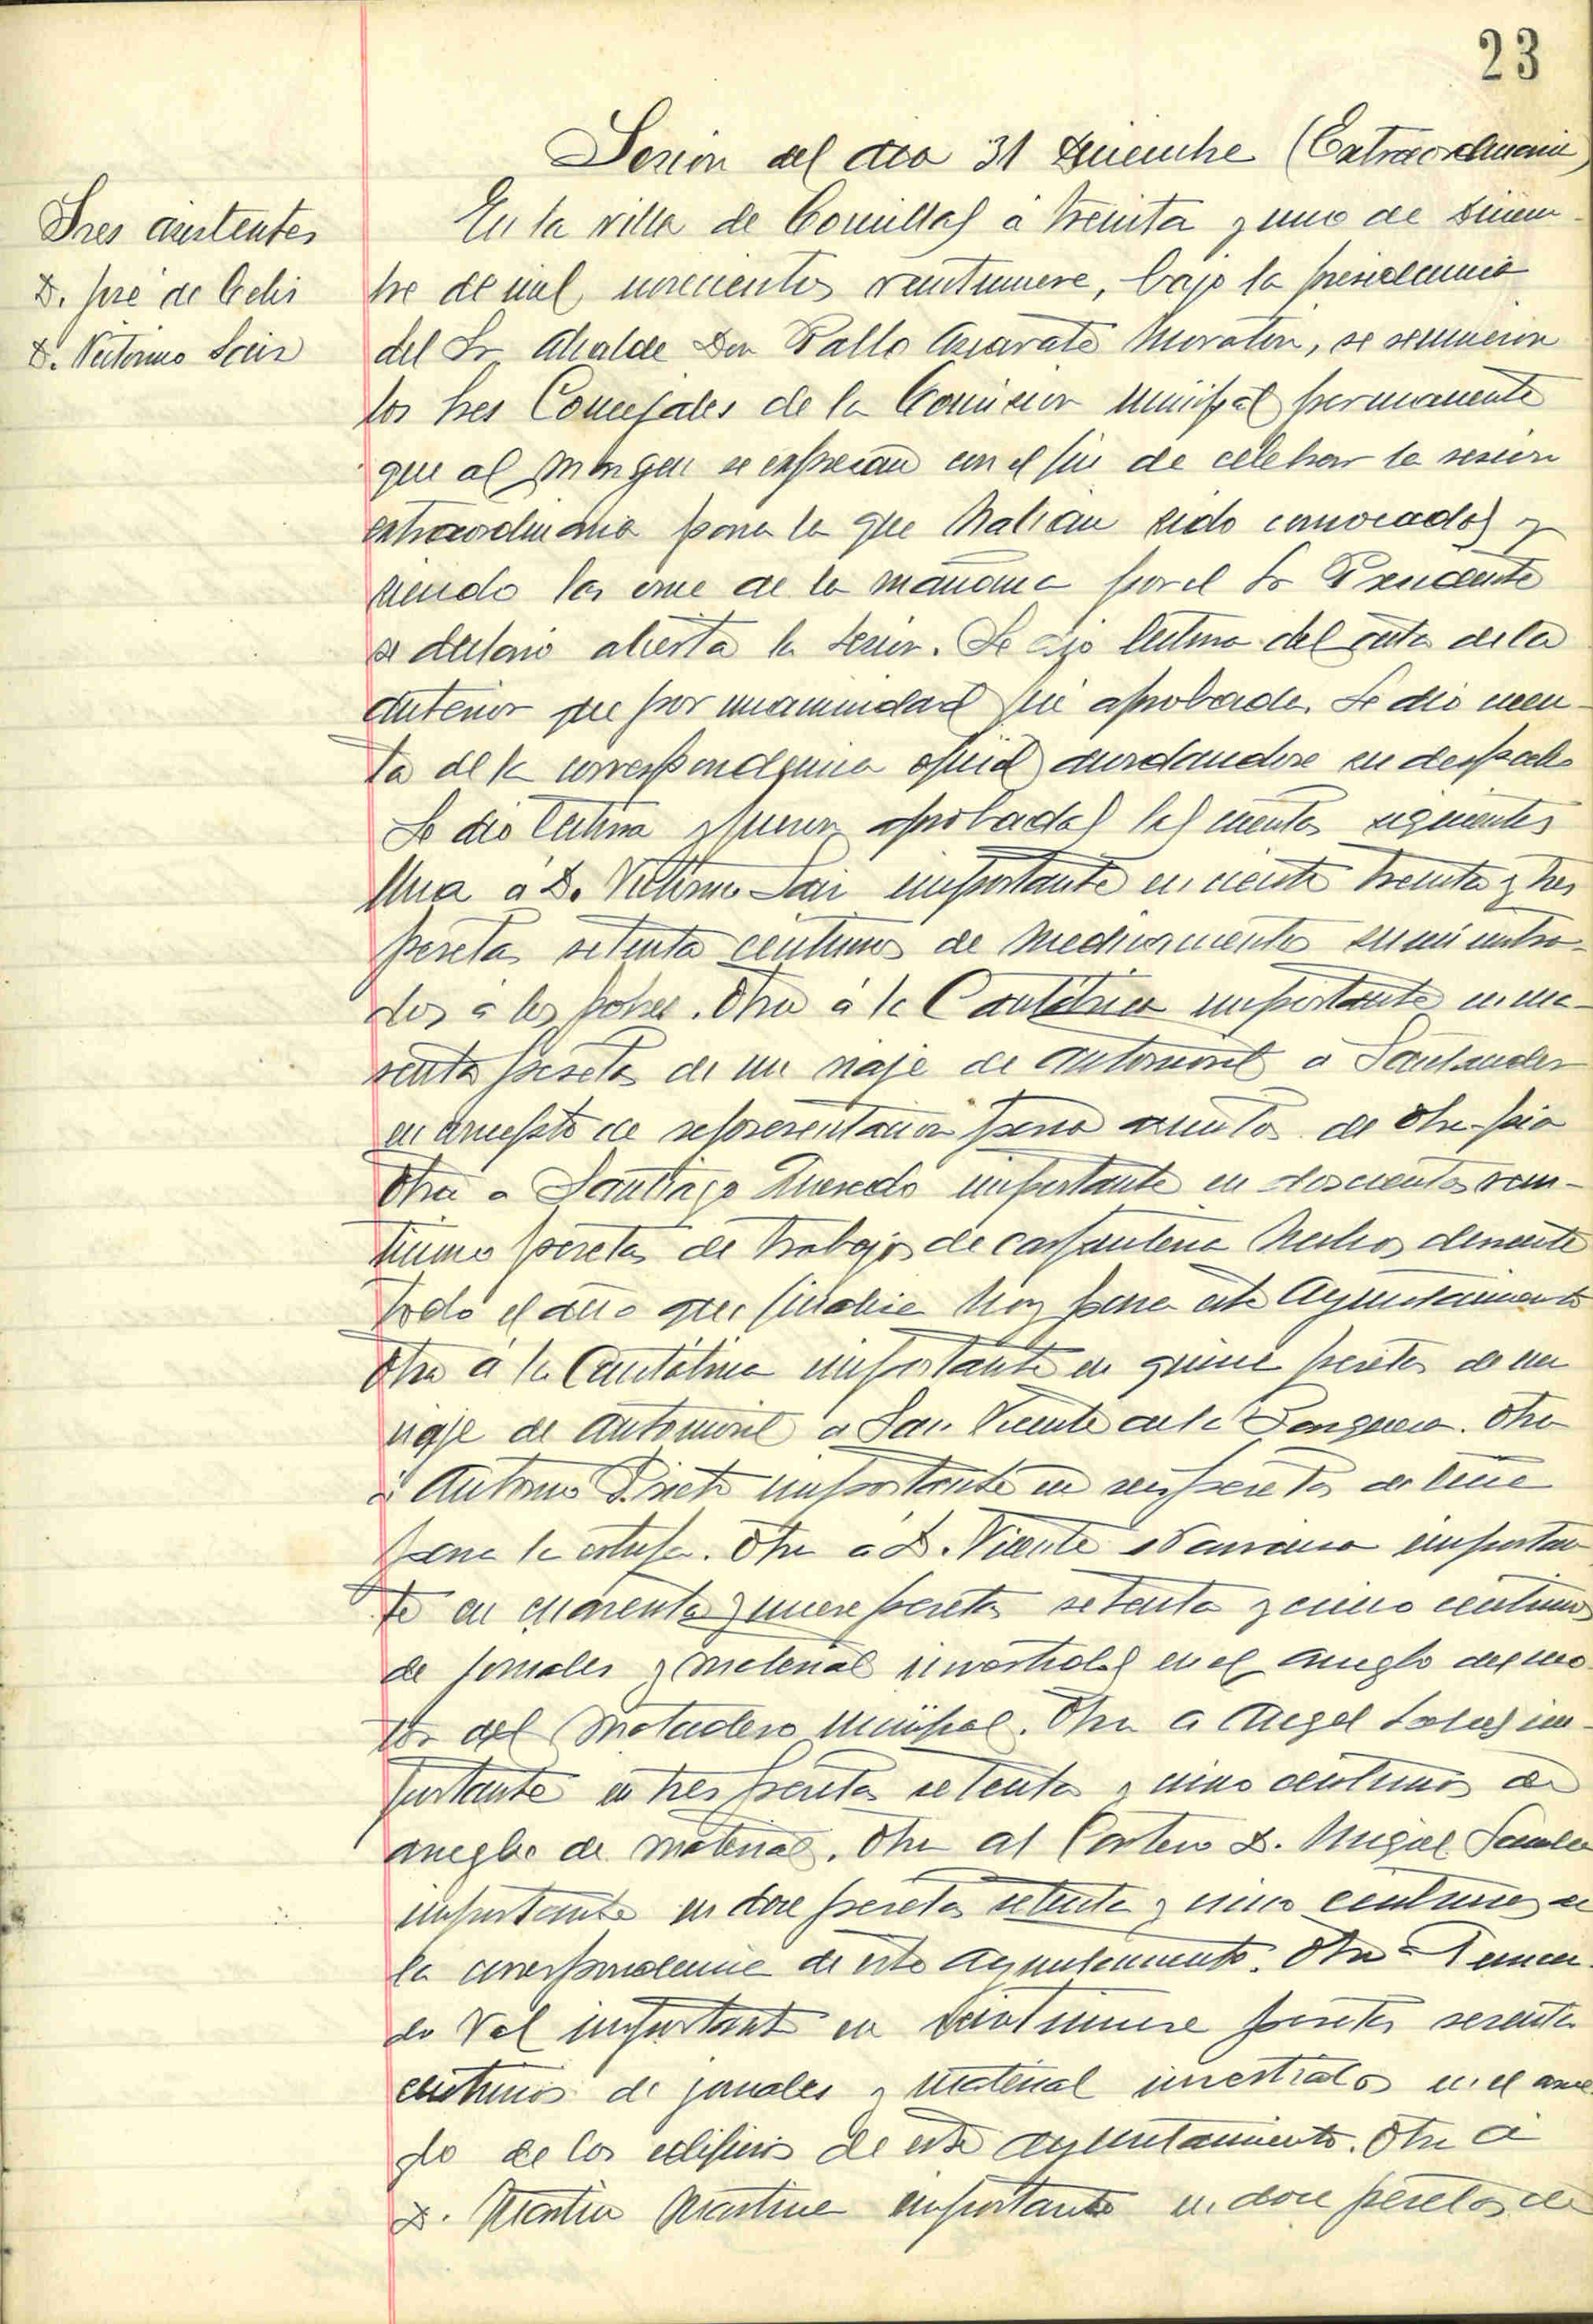 23
Sesion del dia 31 Diciembre (Extraordinaria)
Sres asistentes
D. José de Celis
D. Victorino Sainz
En la villa de Comillas á treinta y uno de Diciem-
bre de mil novecientos veintinueve, bajo la presidencia
del Sr Alcalde Don Pablo Azcarate Moratin, se reunieron
los Sres Concejales de la Comision Municipal permanente
que al margen se expresan con el fin de celebrar la sesion
extraordinaria para la que habian sido convocados y
siendo las once de la mañana por el Sr Presidente
se declaró abierta la sesion. Se dió lectura del acta de la
anterior que por unanimidad fué aprobada. Se dió cuen-
ta de la correspondencia oficial acordandose su despacho
Se dio lectura y fueron aprobadas las cuentas siguientes
Una á D. Victorino Sainz importante en ciento treinta y tres
pesetas setenta centimos de medicamentos suministra-
dos á los pobres. Otra á la Cantábrica importante en
senta pesetas de un viaje de automovil a Santander
en concepto de representacion para asuntos de Obra-pia
Otra a Santiago Quevedo importante en doscientas vein-
tiuna pesetas de trabajos de carpinteria hechos durante
todo el año que finaliza hoy para este Ayuntamiento
Otra á la Cantábrica importante en quince pesetas de un
viaje de automovil a San Vicente de la Barquera. Otra
á Antonio Prieto importante en seis pesetas de leña
para la estufa. Otra á D. Vicente importan-
te en cuarenta y nueve pesetas setenta y cinco centimos
de jornales y material invertidos en el arreglo del mo-
tor del Matadero Municipal. Otra a Angel im-
portante en tres pesetas setenta y cinco centimos de
arreglo de material. Otra al Cartero D. Miguel
importante en doce pesetas setenta y cinco centimos de
la correspondencia de este Ayuntamiento. Otra a Fernan-
do Val importante en veintinueve pesetas sesenta
centimos de jornales y material invertidos en el arre-
glo de los edificios de este Ayuntamiento. Otra á
D. Martin Martinez importante en doce pesetas de